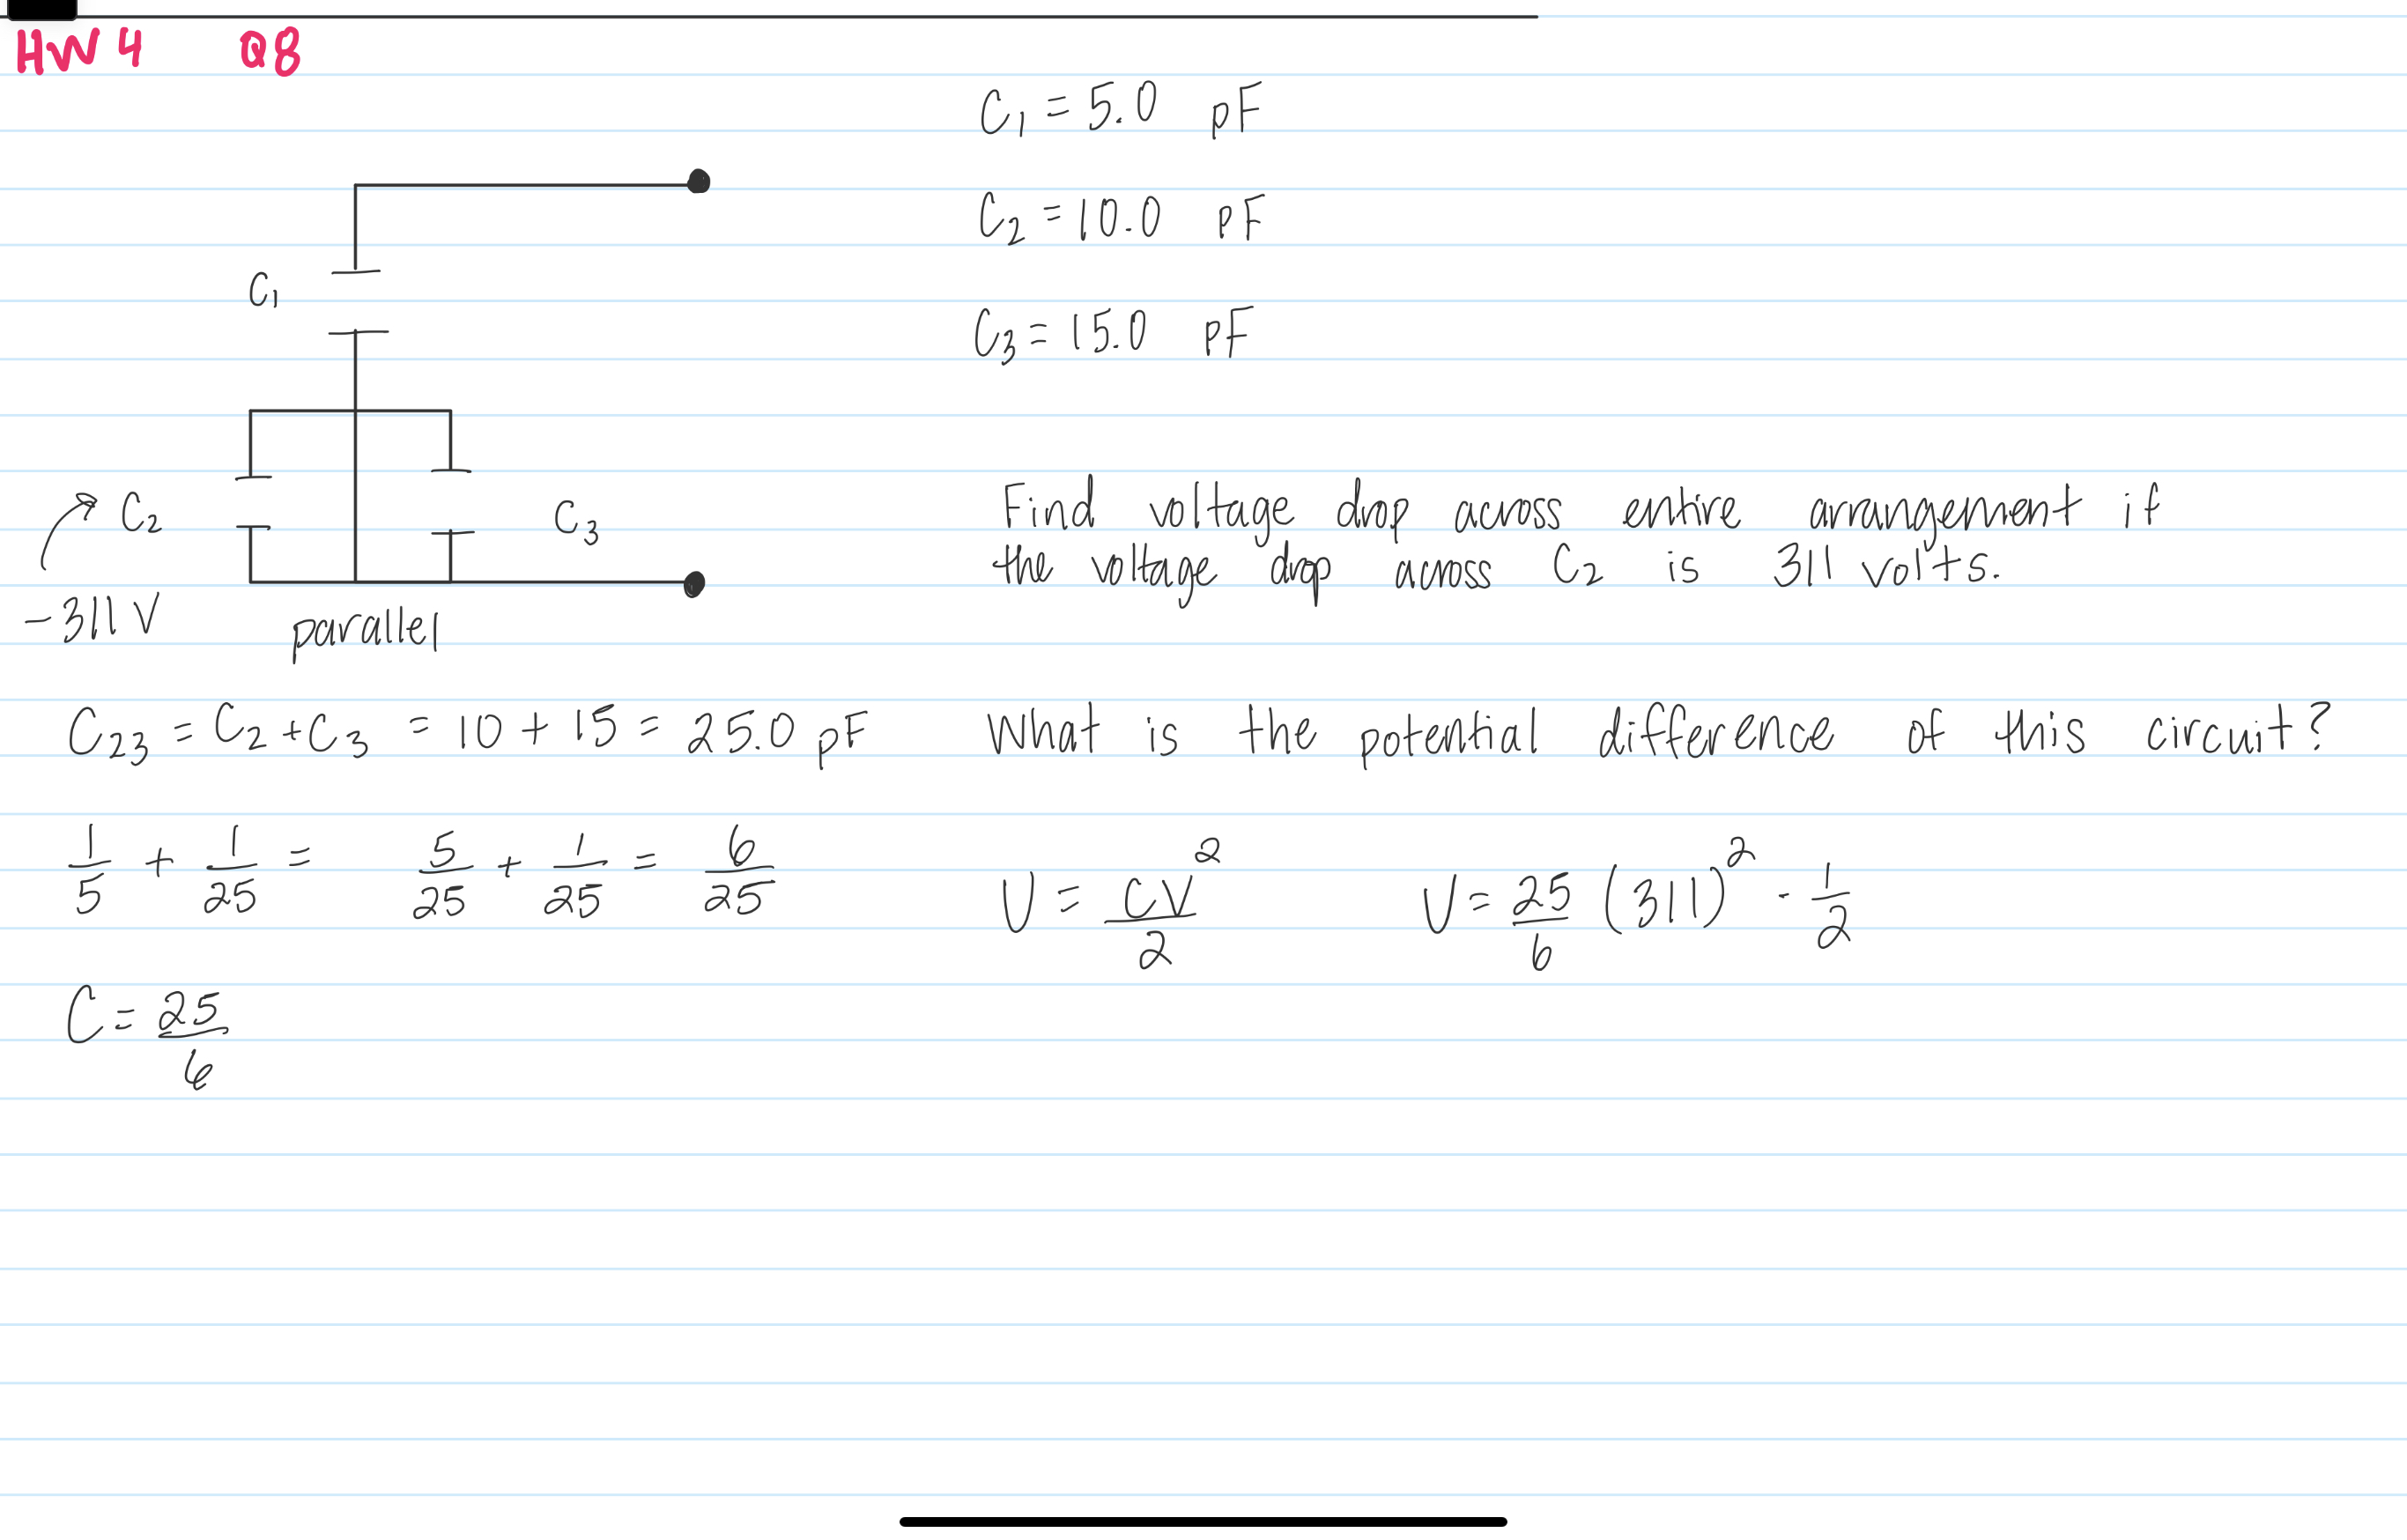 HW 4 Q8
C₁ = 5.0 pF
C₂ = 10.0 pF
C₃ = 15.0 pF
C₁
C₂
C₃
-311V
parallel
Find voltage drop across entire arrangement if
the voltage drop across C₂ is 311 volts.
C₂₃ = C₂ + C₃ = 10 + 15 = 25.0 pF
What is the potential difference of this circuit?
1/5 + 1/25 = 5/25 + 1/25 = 6/25
U = CV²/2
U = 25/6 (311)² · 1/2
C = 25/6